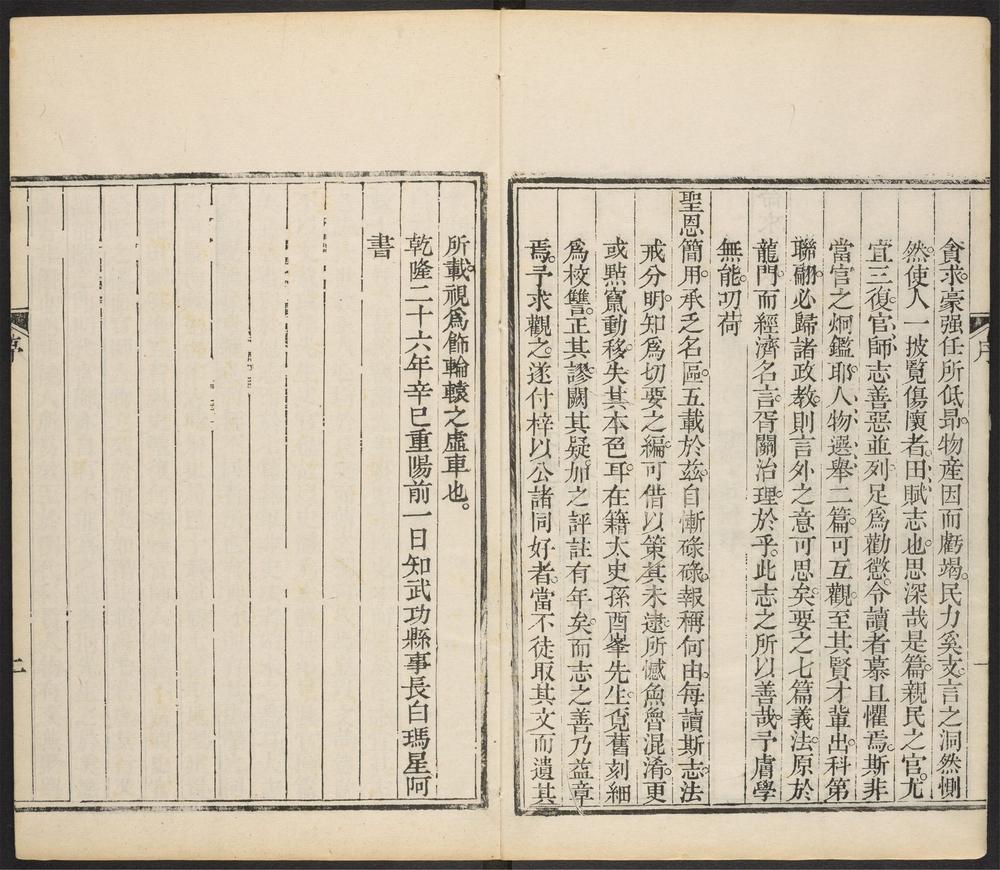 貪求豪强任所低昻物産因而虧竭民力奚支言之洞然惻
然使人一披覧傷懷者田賦志也思深哉是篇親民之官尤
宜三復官師志善惡並列足爲勸懲令讀者慕且懼焉斯非
當官之炯鑑耶人物選舉二篇可互觀至其賢才輩出科第
聯翩必歸諸政教則言外之意可思矣要之七篇義法原於
龍門而經濟名言胥關治理於乎此志之所以善哉予膚學
無能叨荷
聖恩簡用承乏名區五載於兹自慚碌碌報稱何由每讀斯志法
戒分明知爲切要之編可借以策其未逮所憾魚魯混淆更
或㸃竄動移失其本色耳在籍太史孫酉峯先生覓舊刻細
爲校讐正其謬闕其疑加之評註有年矣而志之善乃益章
焉予求觀之遂付梓以公諸同好者當不徒取其文而遺其
序
一
所載視爲飾輪轅之虛車也。
乾隆二十六年辛巳重陽前一日知武功縣事長白瑪星阿
書
序
二